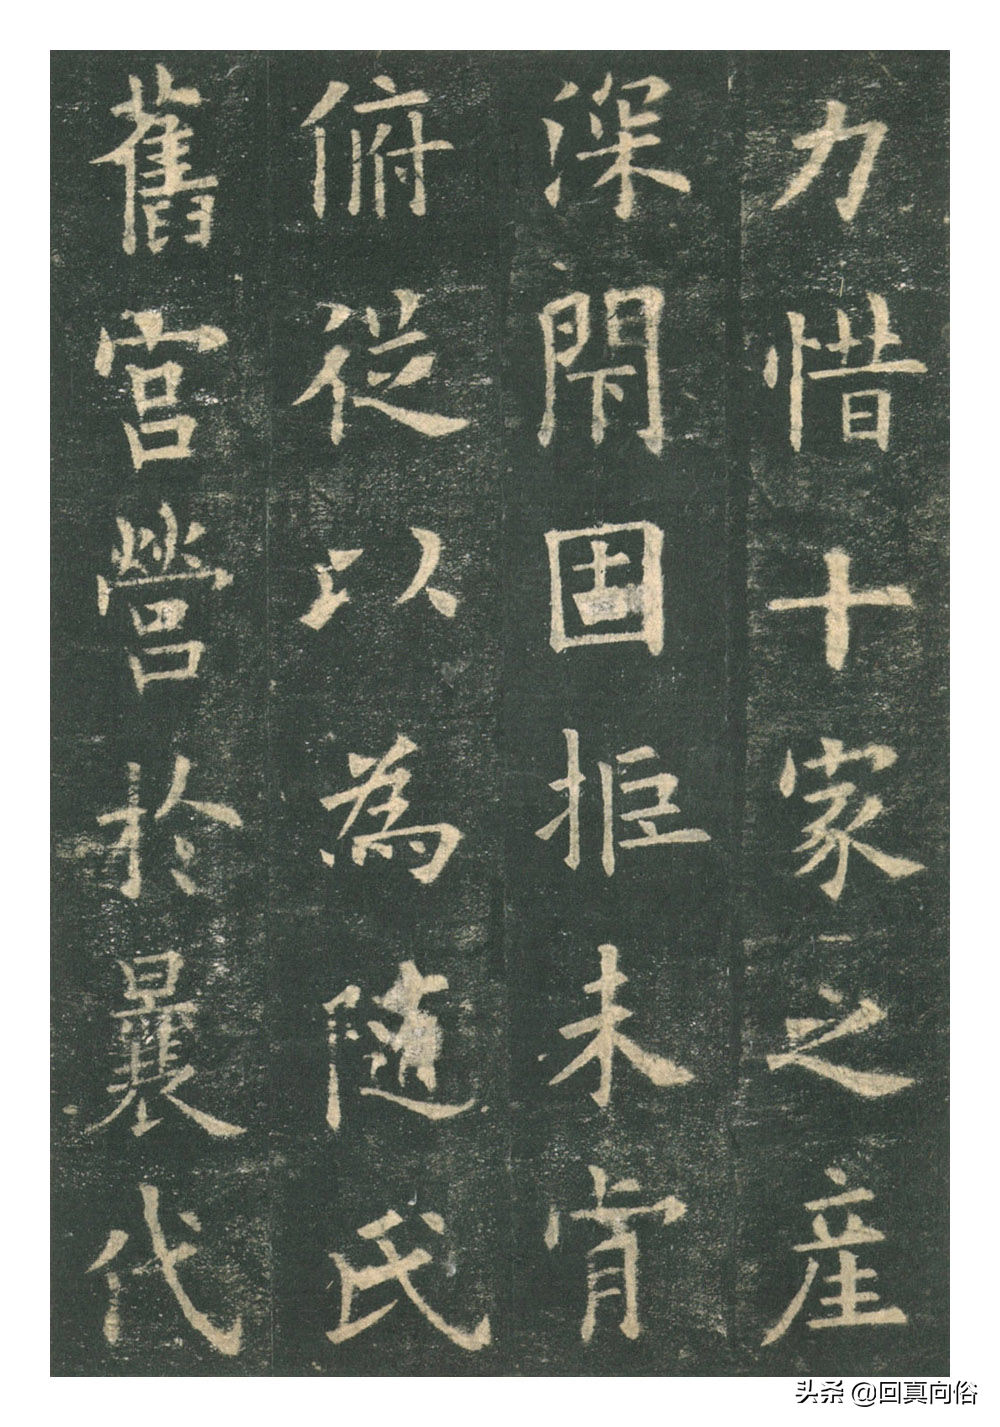 力惜十家之産
深閇固拒未肯
俯從以為随氏
舊宮營於曩代
头条 @回真向俗